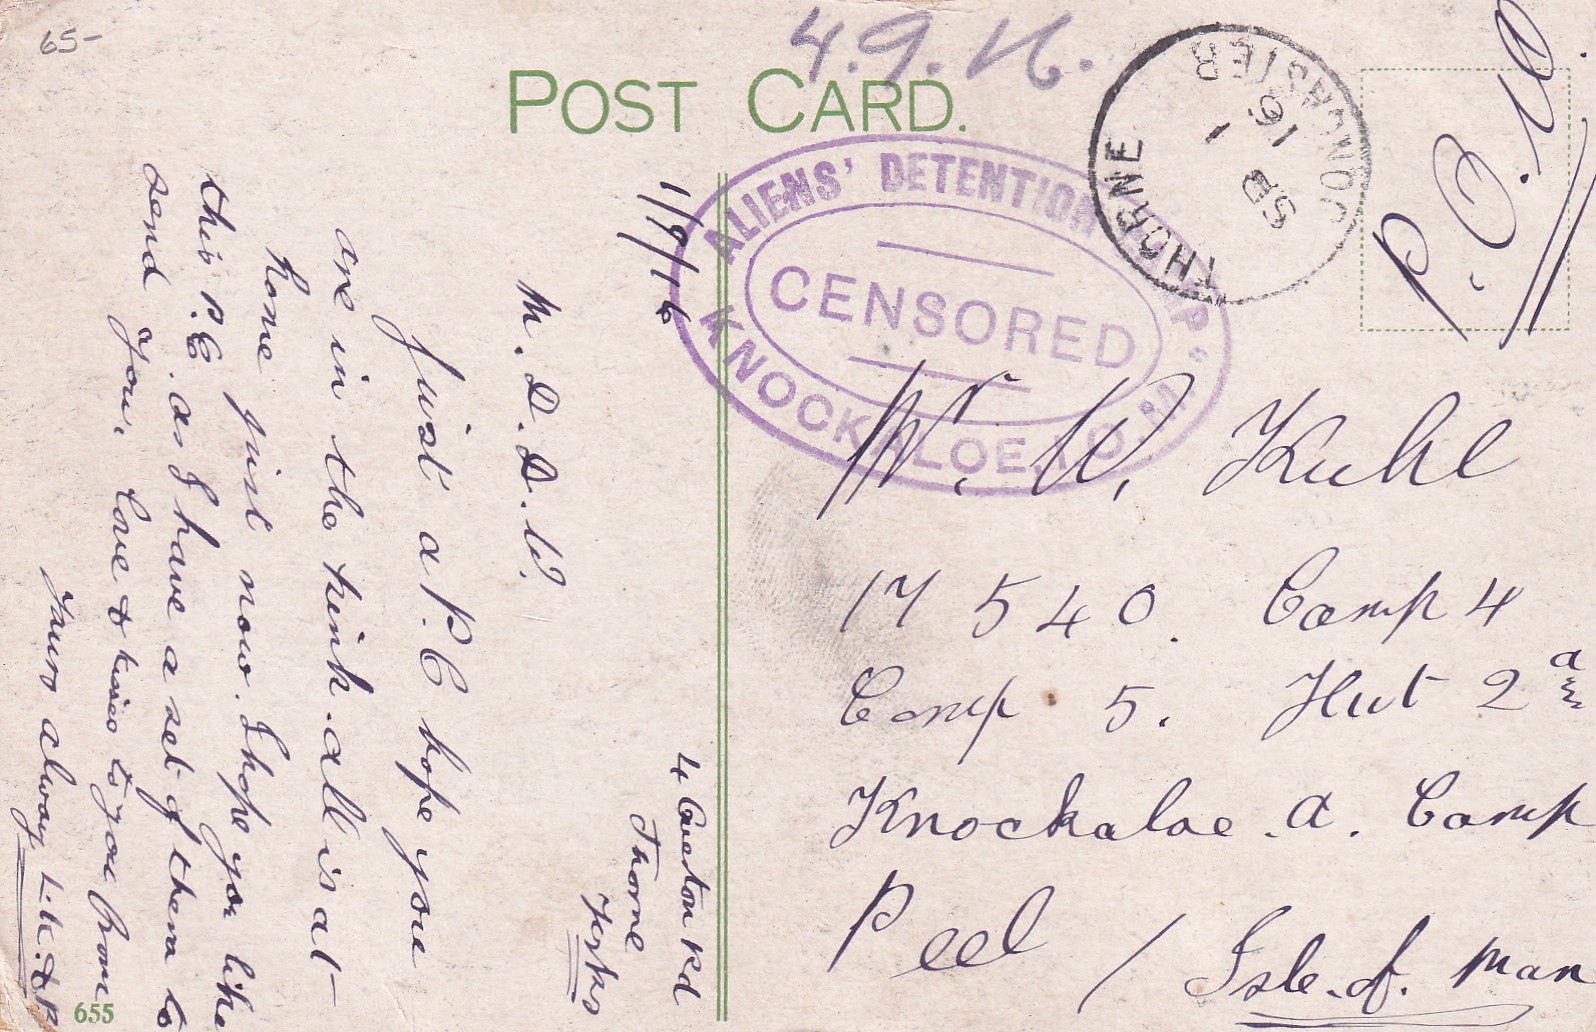 65-
4.9.16.
POST CARD.
P.O.W.
THORNE
DONCASTER
SP 1
16
ALIENS' DETENTION CAMP
CENSORED
KNOCKALOE, I.O.M.
Mr. W. Kuhl
17540. Camp 4
Comp 5. Hut 2a
Knockaloe. a. Camp
Peel / Isle. of. Man
4 Rd
Thorne
Yorks
1/9/16
M. D. D. W.
Just a P.C hope you
are in the pink. all is at
home just now. I hope you like
this P.C. as I have a set of them to
send you. love & kisses to you from
Yours always L.K. & P.
655